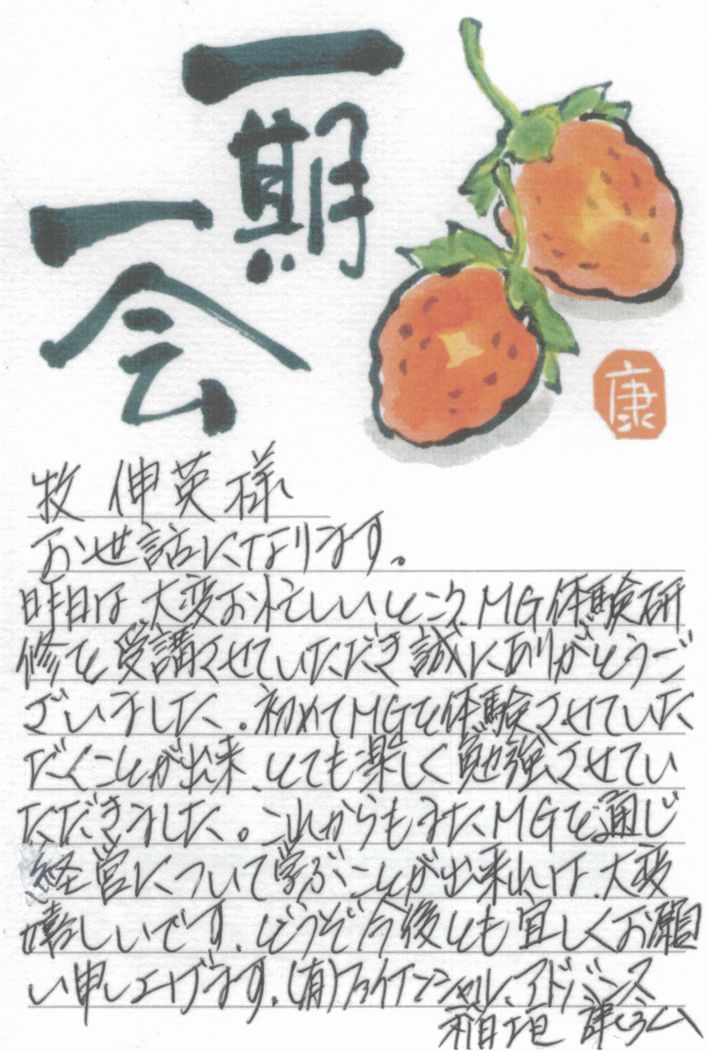 一期
一会
康
牧 伸英様
お世話になります。
昨日は大変お忙しいところ、MG体験研
修を受講させていただき誠にありがとうご
ざいました。初めてMGを体験させていた
だくことが出来、とても楽しく勉強させてい
ただきました。これからもまたMGを通じ
経営について学ぶことが出来れば、大変
嬉しいです。どうぞ今後とも宜しくお願
い申し上げます。(有)ファイナンシャルアドバンス
稲垣